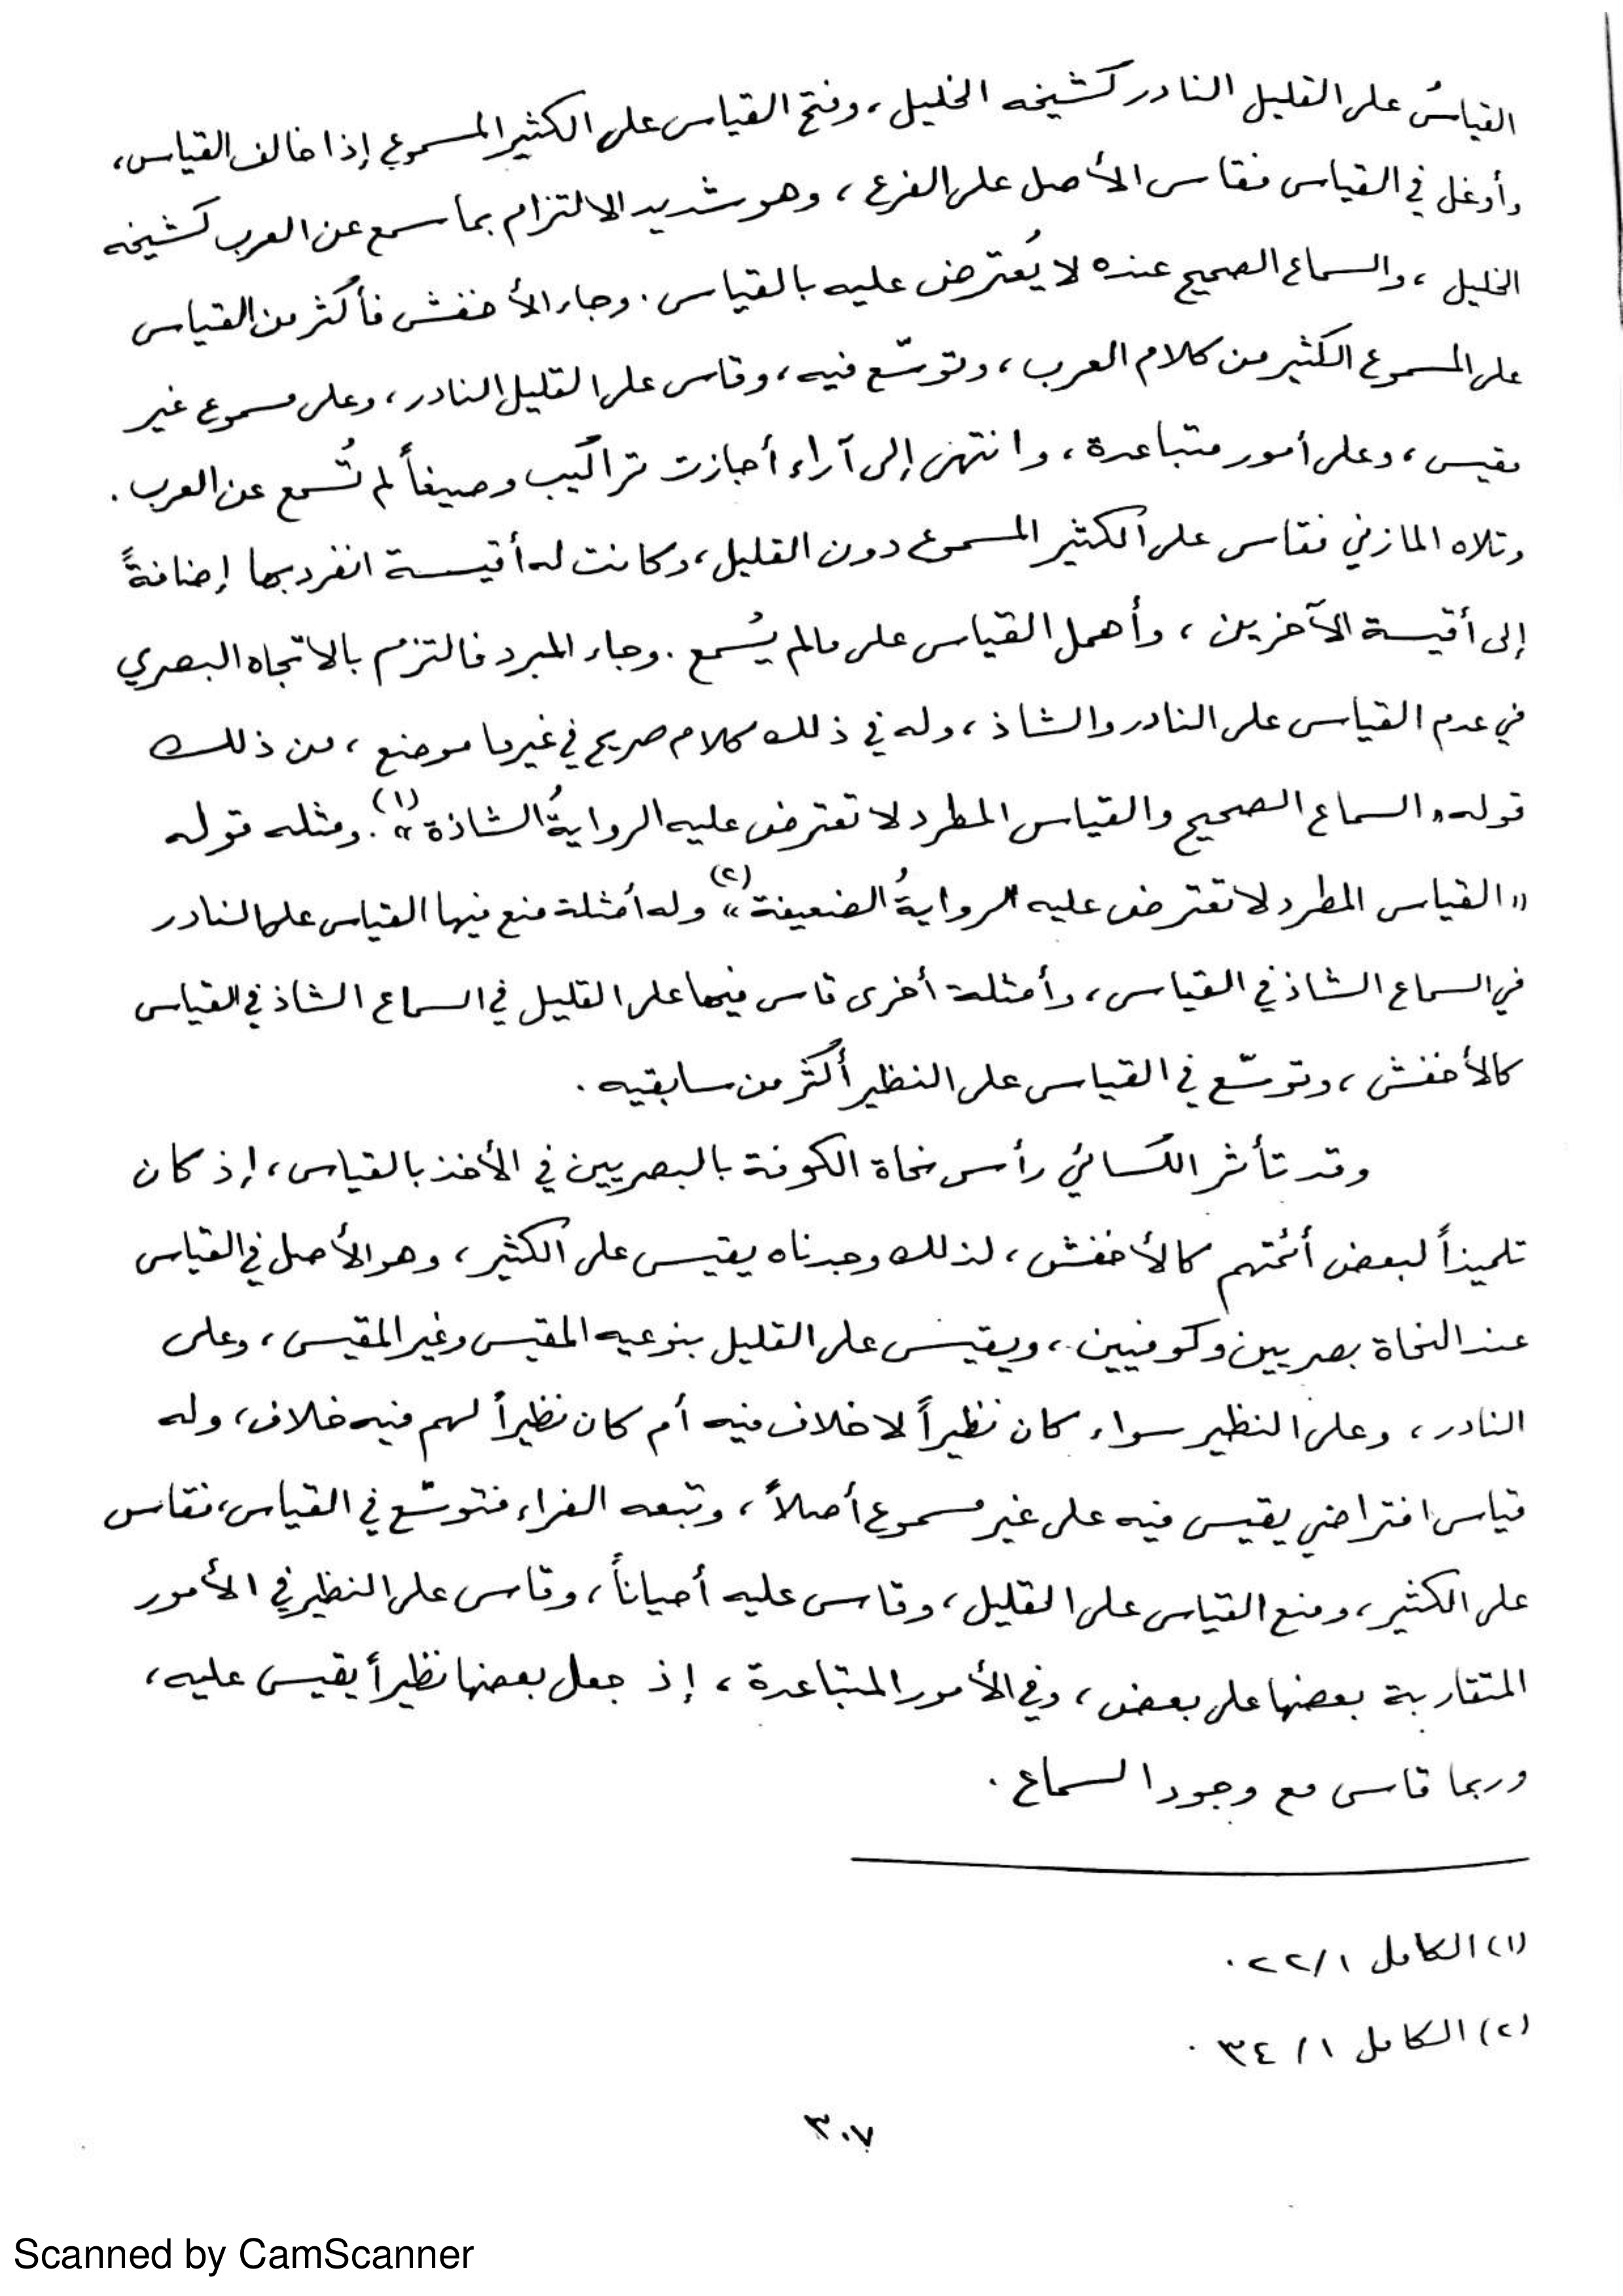 القياسُ على القليل النادر كشيخه الخليل، وفتح القياس على الكثير المسموع إذا خالف القياس،
وأوغل في القياس فقاس الأصل على الفرع، وهو شديد الالتزام بما سمع عن العرب كشيخه
الخليل، والسماع الصحيح عنده لا يُعترض عليه بالقياس. وجاء الأخفش فأكثر من القياس
على المسموع الكثير من كلام العرب، وتوسّع فيه، وقاس على القليل النادر، وعلى مسموع غير
مقيس، وعلى أمور متباعدة، وانتهى إلى آراء أجازت تراكيب وصيغاً لم تُسمع عن العرب.
وتلاه المازني فقاس على الكثير المسموع دون القليل، وكانت له أقيسة انفرد بها إضافةً
إلى أقيسة الآخرين، وأهمل القياس على مالم يُسمع. وجاء المبرد فالتزم بالاتجاه البصري
في عدم القياس على النادر والشاذ، وله في ذلك كلام صريح في غير ما موضع، من ذلك
قوله «السماع الصحيح والقياس المطرد لا تعترض عليه الروايةُ الشاذة»(١). ومثله قوله
«القياس المطرد لا تعترض عليه الروايةُ الضعيفة»(٢) وله أمثلة منع فيها القياس على النادر
في السماع الشاذ في القياس، وأمثلة أخرى قاس فيها على القليل في السماع الشاذ في القياس
كالأخفش، وتوسّع في القياس على النظير أكثر من سابقيه.
وقد تأثر الكسائي رأس نحاة الكوفة بالبصريين في الأخذ بالقياس، إذ كان
تلميذاً لبعض أئمتهم كالأخفش، لذلك وجدناه يقيس على الكثير، وهو الأصل في القياس
عند النحاة بصريين وكوفيين، ويقيس على القليل بنوعيه المقيس وغير المقيس، وعلى
النادر، وعلى النظير سواء كان نظيراً لا خلاف فيه أم كان نظيراً لهم فيه خلاف، وله
قياس افتراضي يقيس فيه على غير مسموع أصلاً، وتبعه الفراء فتوسّع في القياس، فقاس
على الكثير، ومنع القياس على القليل، وقاس عليه أحياناً، وقاس على النظير في الأمور
المتقاربة بعضها على بعض، وفي الأمور المتباعدة، إذ جعل بعضها نظيراً يقيس عليه،
وربما قاس مع وجود السماع.
(١) الكامل ٢٢/١.
(٢) الكامل ٣٤/١.
٣٠٧
Scanned by CamScanner